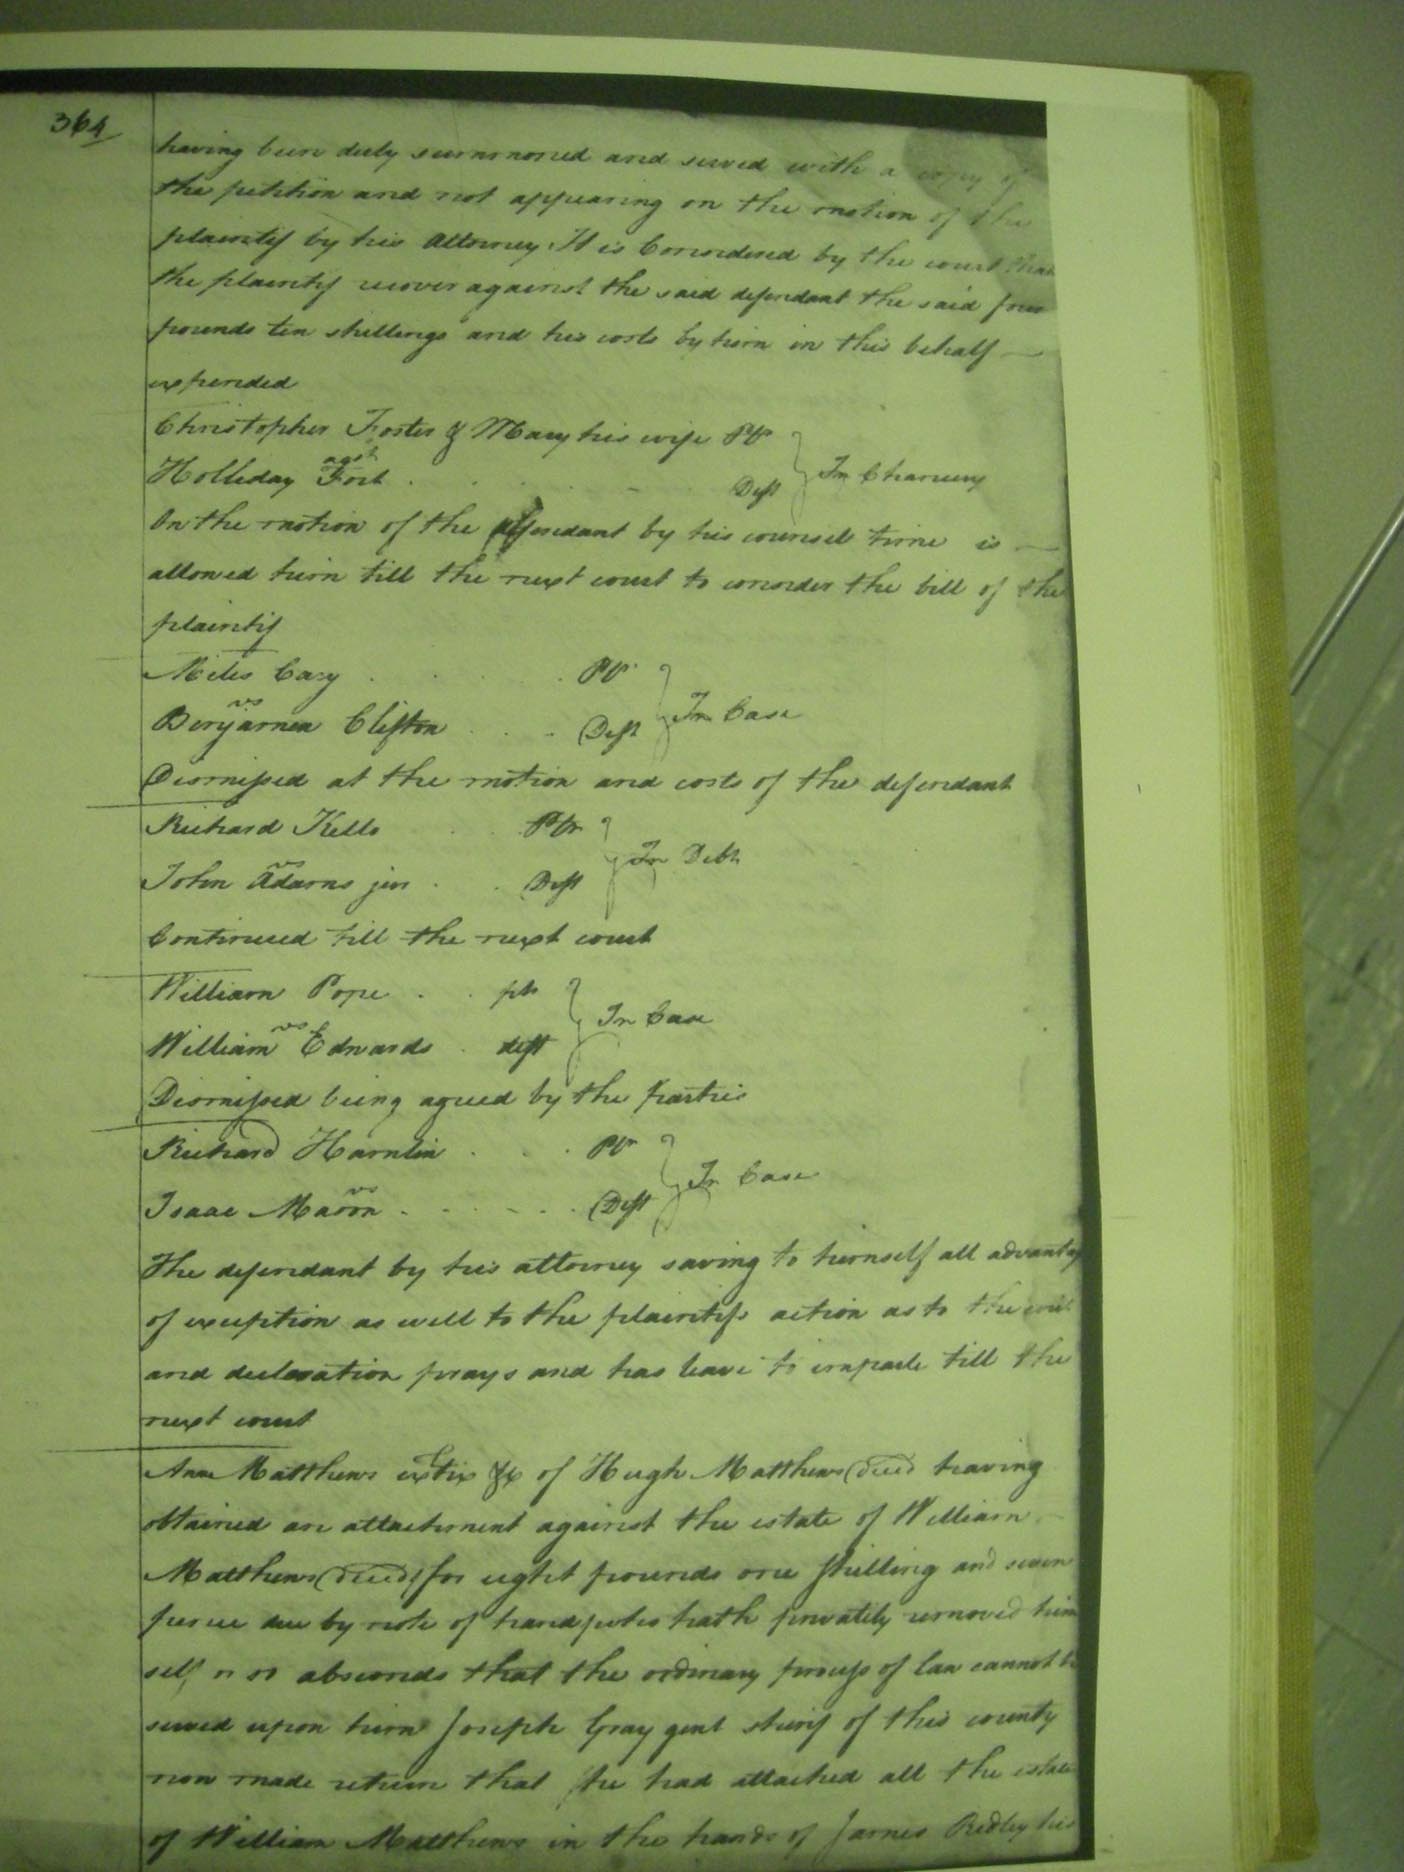 364
having been duly summoned and served with a copy of
the petition and not appearing on the motion of the
plaintif by his attorney It is Considered by the court that
the plaintif recover against the said defendant the said four
pounds ten shillings and his costs by him in this behalf
expended
Christopher Foster & Mary his wife Plt
agst
Holliday Fort Deft In Chancery
On the motion of the defendant by his counsel time is
allowed him till the next court to consider the bill of the
plaintif
Miles Cary Plt
vs
Benjamen Clifton Deft In Case
Dismissed at the motion and costs of the defendant
Richard Kello Plt
vs
John Adams jun Deft In Debt
Continued till the next court
William Pope plt
vs
William Edwards deft In Case
Dismissed being agreed by the parties
Richard Hamlin Plt
vs
Isaac Mason Deft In Case
The defendant by his attorney saving to himself all advantag
of exception as well to the plaintifs action as to the writ
and declaration prays and has leave to imparle till the
next court
Ann Matthews extix &c of Hugh Matthews decd having
obtained an attachment against the estate of William
Matthews (decd) for eight pounds one shilling and seven
pence due by note of hand who hath privately removed him
self or so absconds that the ordinary process of law cannot be
served upon him Joseph Gray gent sherif of this county
now made return that he had attached all the estate
of William Matthews in the hands of James Ridley his